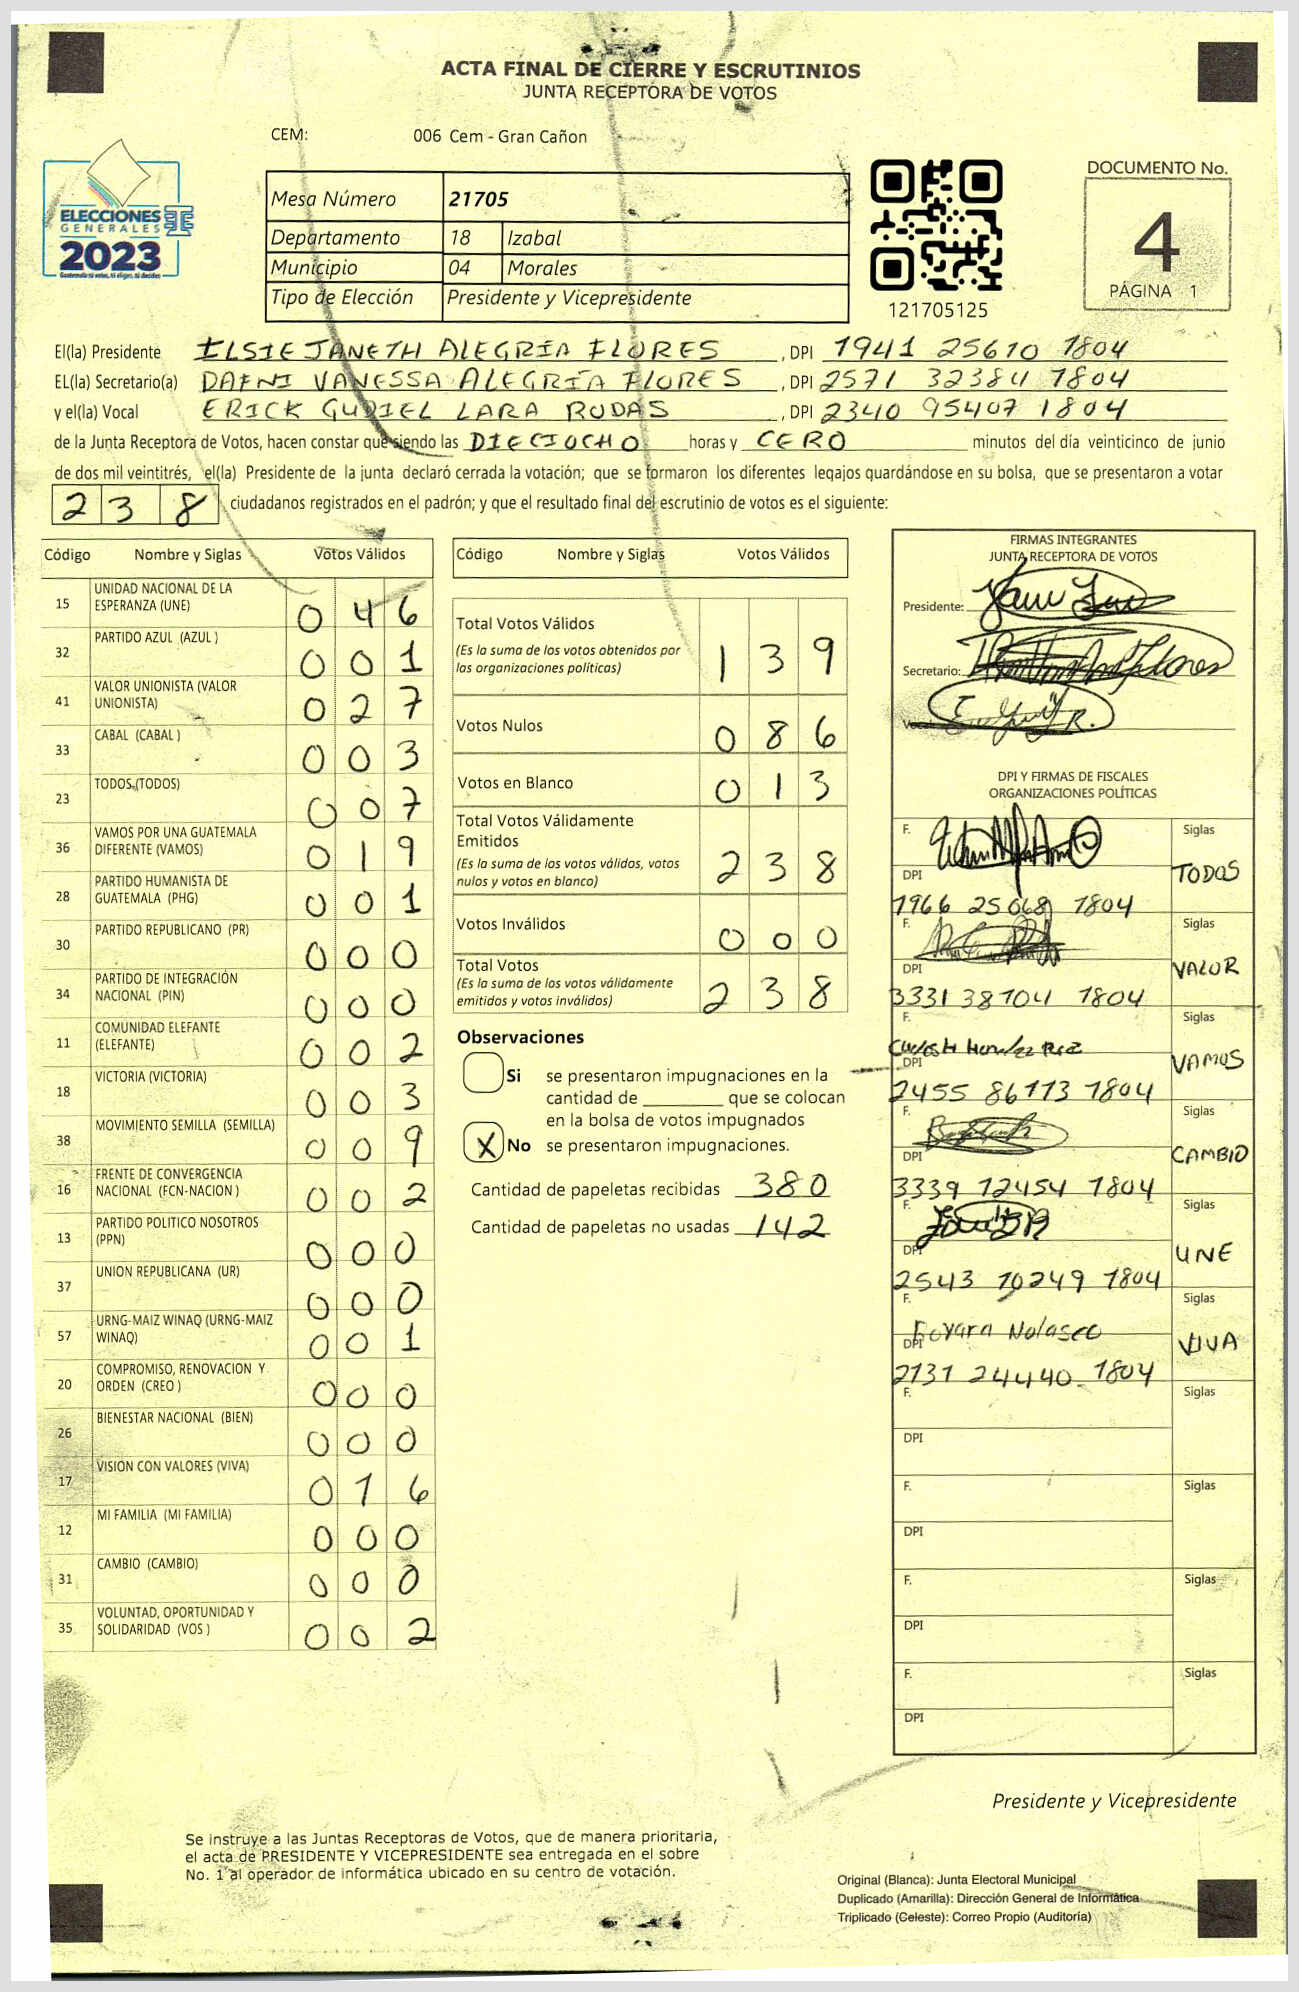 ACTA FINAL DE CIERRE Y ESCRUTINIOS
JUNTA RECEPTORA DE VOTOS
CEM: 006 Cem - Gran Cañon
ELECCIONES
GENERALES
2023
Mesa Número 21705
Departamento 18 Izabal
Municipio 04 Morales
Tipo de Elección Presidente y Vicepresidente
121705125
DOCUMENTO No.
4
PÁGINA 1
El(la) Presidente ILSIE JANETH ALEGRÍA FLORES , DPI 1941 25610 1804
EL(la) Secretario(a) DAFNI VANESSA ALEGRÍA FLORES , DPI 2571 32384 1804
y el(la) Vocal ERICK GUDIEL LARA RODAS , DPI 2340 95407 1804
de la Junta Receptora de Votos, hacen constar que siendo las DIECIOCHO horas y CERO minutos del día veinticinco de junio
de dos mil veintitrés, el(la) Presidente de la junta declaró cerrada la votación; que se formaron los diferentes legajos guardándose en su bolsa, que se presentaron a votar
238 ciudadanos registrados en el padrón; y que el resultado final del escrutinio de votos es el siguiente:
Código Nombre y Siglas Votos Válidos
15 UNIDAD NACIONAL DE LA ESPERANZA (UNE) 0 4 6
32 PARTIDO AZUL (AZUL ) 0 0 1
41 VALOR UNIONISTA (VALOR UNIONISTA) 0 2 7
33 CABAL (CABAL ) 0 0 3
23 TODOS (TODOS) 0 0 7
36 VAMOS POR UNA GUATEMALA DIFERENTE (VAMOS) 0 1 9
28 PARTIDO HUMANISTA DE GUATEMALA (PHG) 0 0 1
30 PARTIDO REPUBLICANO (PR) 0 0 0
34 PARTIDO DE INTEGRACIÓN NACIONAL (PIN) 0 0 0
11 COMUNIDAD ELEFANTE (ELEFANTE) 0 0 2
18 VICTORIA (VICTORIA) 0 0 3
38 MOVIMIENTO SEMILLA (SEMILLA) 0 0 9
16 FRENTE DE CONVERGENCIA NACIONAL (FCN-NACION ) 0 0 2
13 PARTIDO POLITICO NOSOTROS (PPN) 0 0 0
37 UNION REPUBLICANA (UR) 0 0 0
57 URNG-MAIZ WINAQ (URNG-MAIZ WINAQ) 0 0 1
20 COMPROMISO, RENOVACION Y ORDEN (CREO ) 0 0 0
26 BIENESTAR NACIONAL (BIEN) 0 0 0
17 VISION CON VALORES (VIVA) 0 1 6
12 MI FAMILIA (MI FAMILIA) 0 0 0
31 CAMBIO (CAMBIO) 0 0 0
35 VOLUNTAD, OPORTUNIDAD Y SOLIDARIDAD (VOS ) 0 0 2
Código Nombre y Siglas Votos Válidos
Total Votos Válidos 1 3 9
(Es la suma de los votos obtenidos por
las organizaciones políticas)
Votos Nulos 0 8 6
Votos en Blanco 0 1 3
Total Votos Válidamente
Emitidos 2 3 8
(Es la suma de los votos válidos, votos
nulos y votos en blanco)
Votos Inválidos 0 0 0
Total Votos 2 3 8
(Es la suma de los votos válidamente
emitidos y votos inválidos)
Observaciones
Si se presentaron impugnaciones en la
cantidad de ________ que se colocan
en la bolsa de votos impugnados
X No se presentaron impugnaciones.
Cantidad de papeletas recibidas 380
Cantidad de papeletas no usadas 142
FIRMAS INTEGRANTES
JUNTA RECEPTORA DE VOTOS
Presidente:
Secretario:
DPI Y FIRMAS DE FISCALES
ORGANIZACIONES POLÍTICAS
F. Siglas
DPI TODOS
1966 25068 1804
F. Siglas
DPI VALOR
3331 38704 1804
F. Siglas
DPI VAMOS
2455 86773 1804
F. Siglas
DPI CAMBIO
3339 12454 1804
F. Siglas
DPI UNE
2543 10249 1804
F. Siglas
Nolasco
DPI VIVA
2131 24440 1804
F. Siglas
DPI
F. Siglas
DPI
F. Siglas
DPI
F. Siglas
DPI
Presidente y Vicepresidente
Se instruye a las Juntas Receptoras de Votos, que de manera prioritaria,
el acta de PRESIDENTE Y VICEPRESIDENTE sea entregada en el sobre
No. 1 al operador de informática ubicado en su centro de votación.
Original (Blanca): Junta Electoral Municipal
Duplicado (Amarilla): Dirección General de Informática
Triplicado (Celeste): Correo Propio (Auditoría)